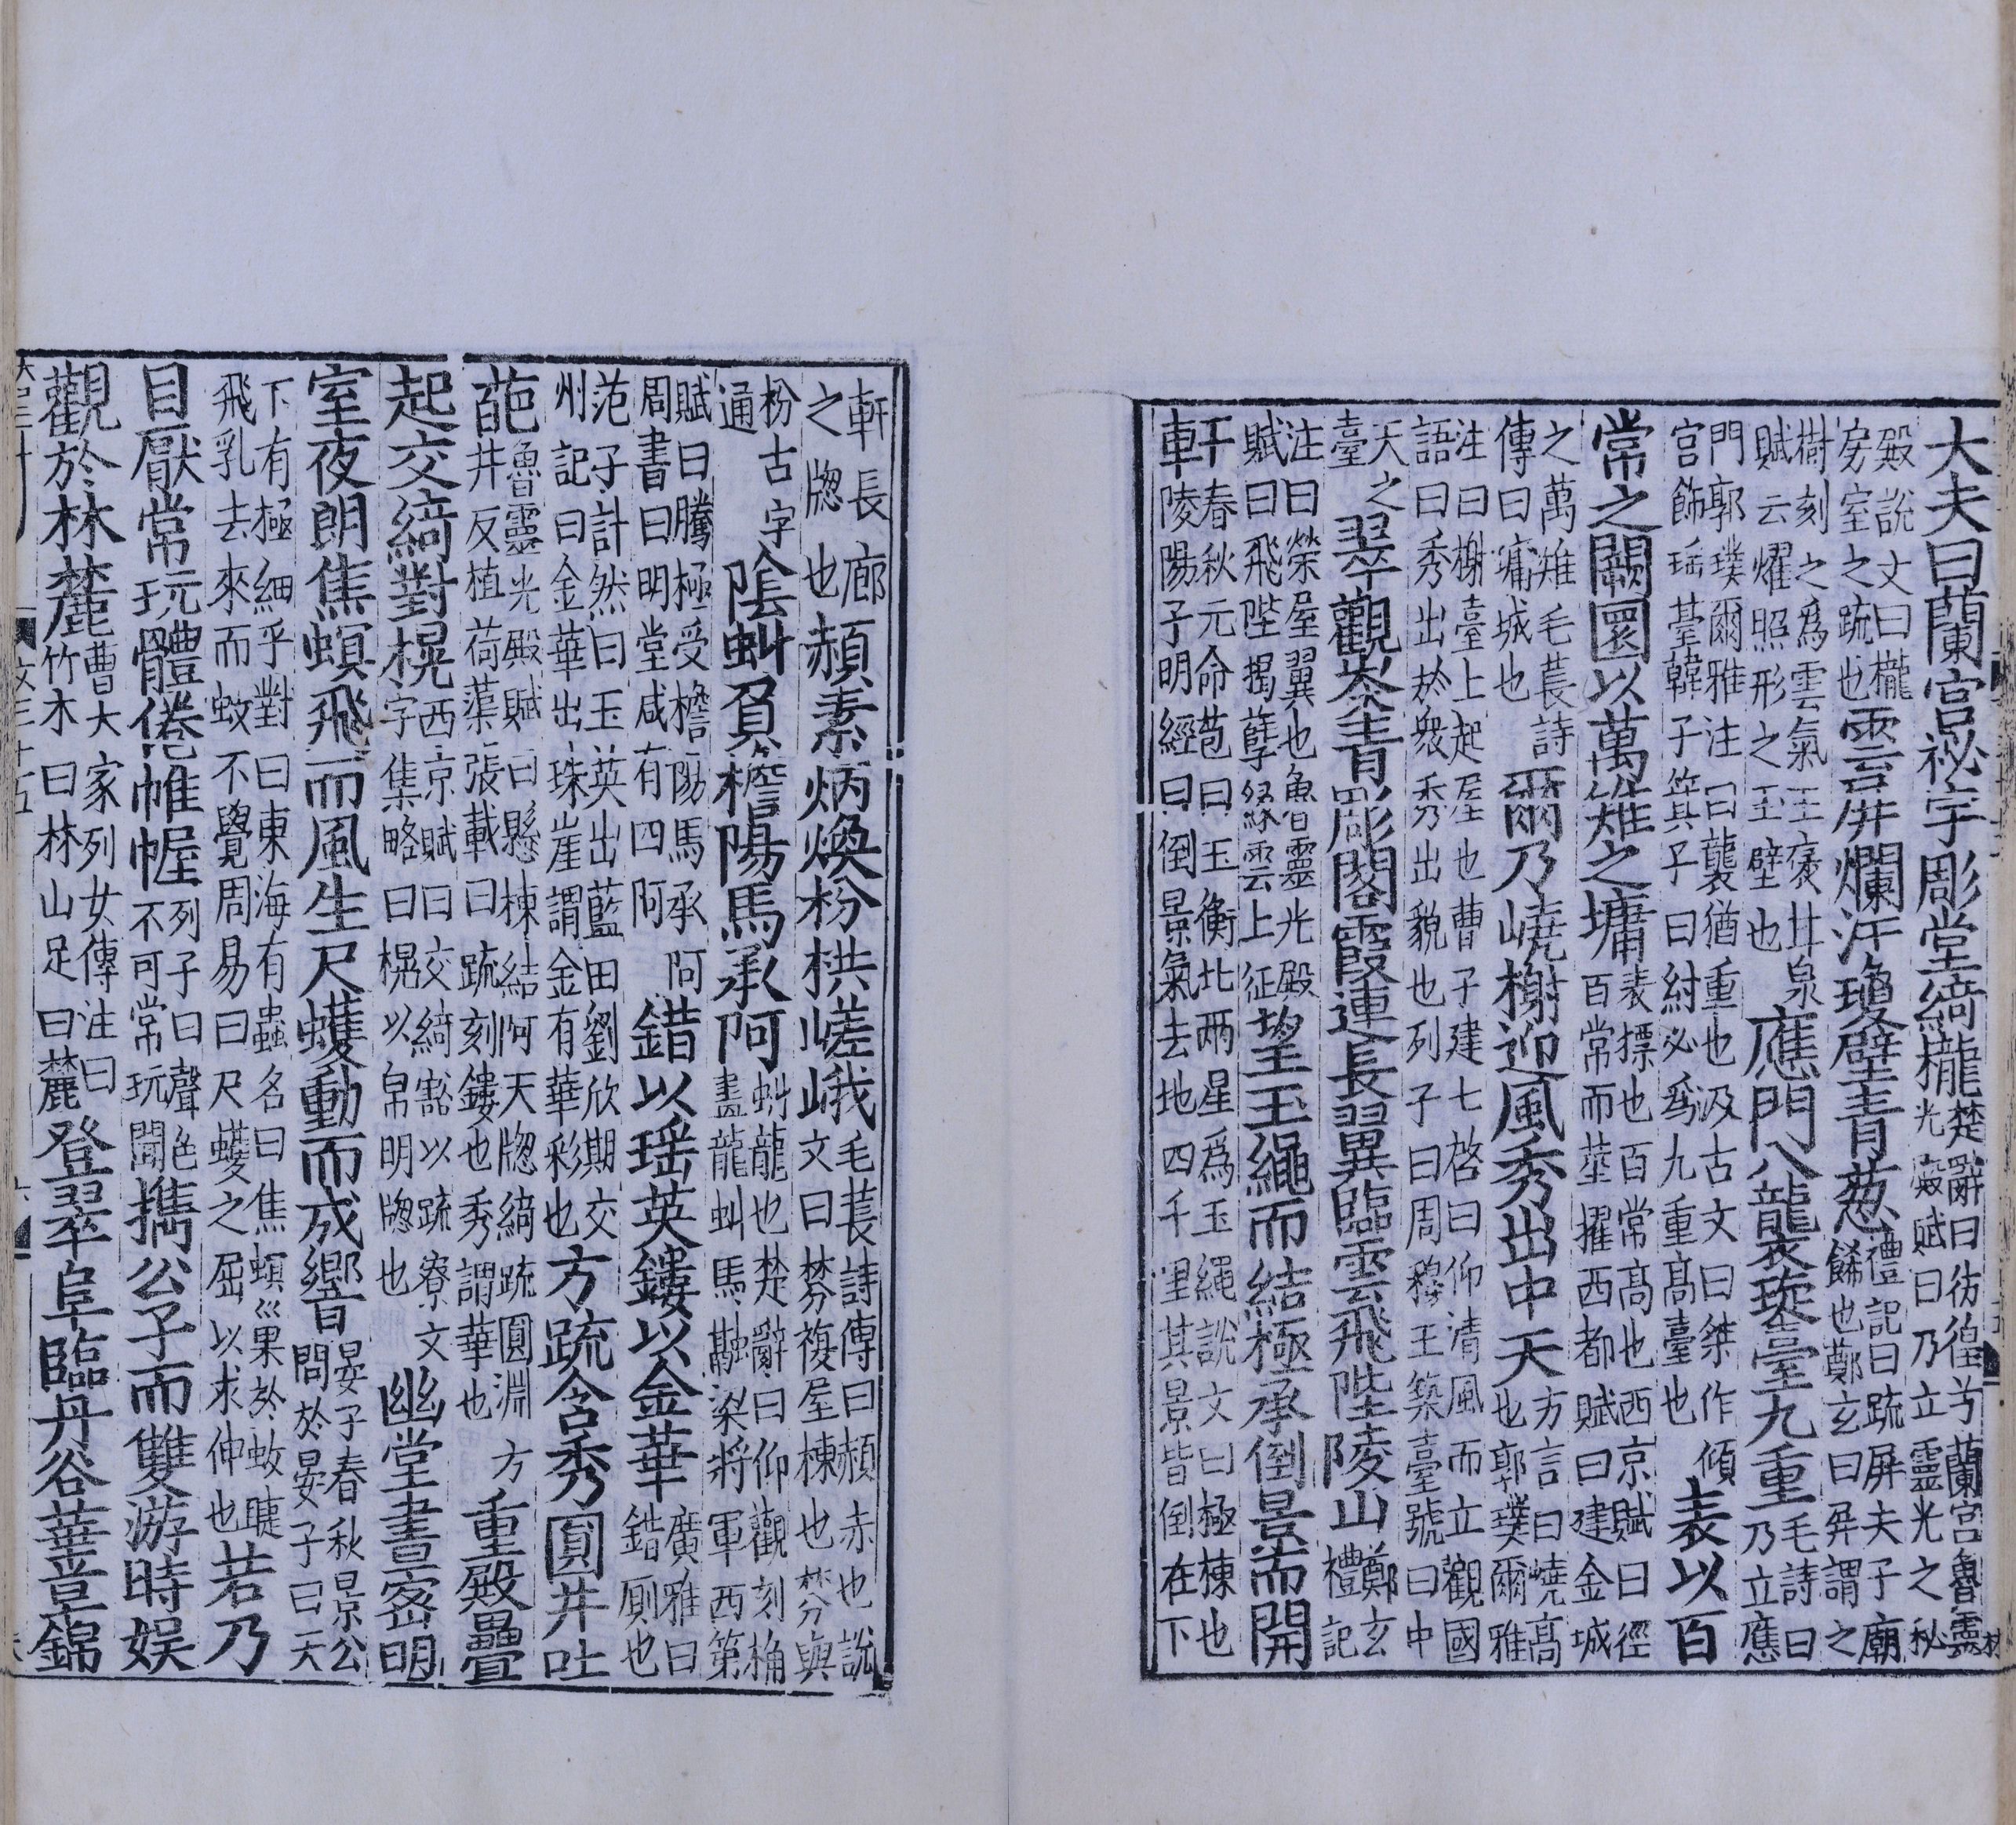 大夫曰蘭宮祕宇彫堂綺櫳楚辭曰彷徨兮蘭宮魯靈光殿賦曰乃立靈光之秘
殿說文曰櫳房室之疏也雲屏爛汗瓊壁青葱禮記曰疏屏夫子廟餙也鄭玄曰屏謂之
樹刻之爲雲氣王襃甘泉賦云耀照形之玉壁也應門八襲琁臺九重毛詩曰乃立應
門郭璞爾雅注曰襲猶重也汲古文曰桀作傾宫飾瑶臺韓子箕子曰紂必爲九重髙臺也表以百
常之闕圜以萬雉之墉表標也百常髙也西京賦曰徑百常而莖擢西都賦曰建金城
之萬雉毛萇詩傳曰墉城也爾乃嶢榭迎風秀出中天方言曰嶢髙也郭璞爾雅
注曰榭臺上起屋也曹子建七啓曰仰清風而立觀國語曰秀出於衆秀出貌也列子曰周穆王築臺號曰中
天之臺翠觀岑青彫閣霞連長翼臨雲飛陛陵山鄭玄禮記
注曰榮屋翼也魯靈光殿賦曰飛陛揭孽緣雲上征望玉繩而結極承倒景而開
軒春秋元命苞曰玉衡北兩星爲玉繩說文曰極棟也陵陽子明經曰倒景氣去地四千里其景皆倒在下
軒長廊之牎也赬素炳煥枌栱嵯峨毛萇詩傳曰赬赤也說文曰棼複屋棟也棼與
枌古字通陰虯負檐陽馬承阿虯龍也楚辭曰仰觀刻桷畫龍虯馬融梁將軍西第
賦曰騰極受檐陽馬承阿周書曰明堂咸有四阿錯以瑶英鏤以金華廣雅曰錯厠也
范子計然曰玉英出藍田劉欣期交州記曰金華出珠崖謂金有華彩也方疏含秀圓井吐
葩魯靈光殿賦曰懸棟結阿天牎綺疏圓淵方井反植荷蕖張載曰疏刻鏤也秀謂華也重殿疊
起交綺對榥西京賦曰交綺豁以疏寮文字集略曰榥以帛明牎也幽堂晝密明
室夜朗焦螟飛而風生尺蠖動而成響晏子春秋景公問於晏子曰天
下有極細乎對曰東海有蟲名曰焦螟巛果於蚊睫飛乳去來而蚊不覺周易曰尺蠖之屈以求伸也若乃
目厭常玩體倦帷幄列子曰聲色不可常玩聞攜公子而雙游時娱
觀於林麓曹大家列女傳注曰竹木曰林山足曰麓登翠阜臨丹谷華豈錦
文三十五